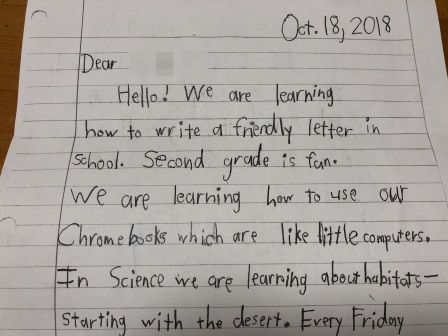 Oct. 18, 2018
Dear
Hello! We are learning
how to write a friendly letter in
school. Second grade is fun.
We are learning how to use our
Chromebooks which are like little computers.
In Science we are learning about habitats-
starting with the desert. Every Friday